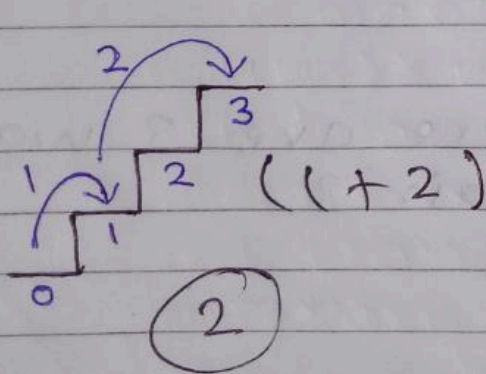 2
3
1
2
(1+2)
1
0
2